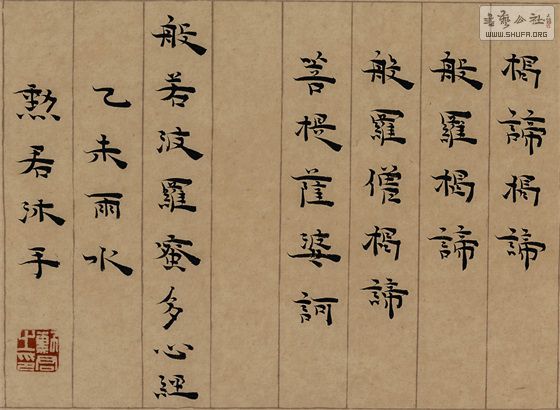 揭諦揭諦
般羅揭諦
般羅僧揭諦
菩提薩婆訶
般若波羅蜜多心經
乙未雨水
勲君沐手
WWW.SHUFA.ORG